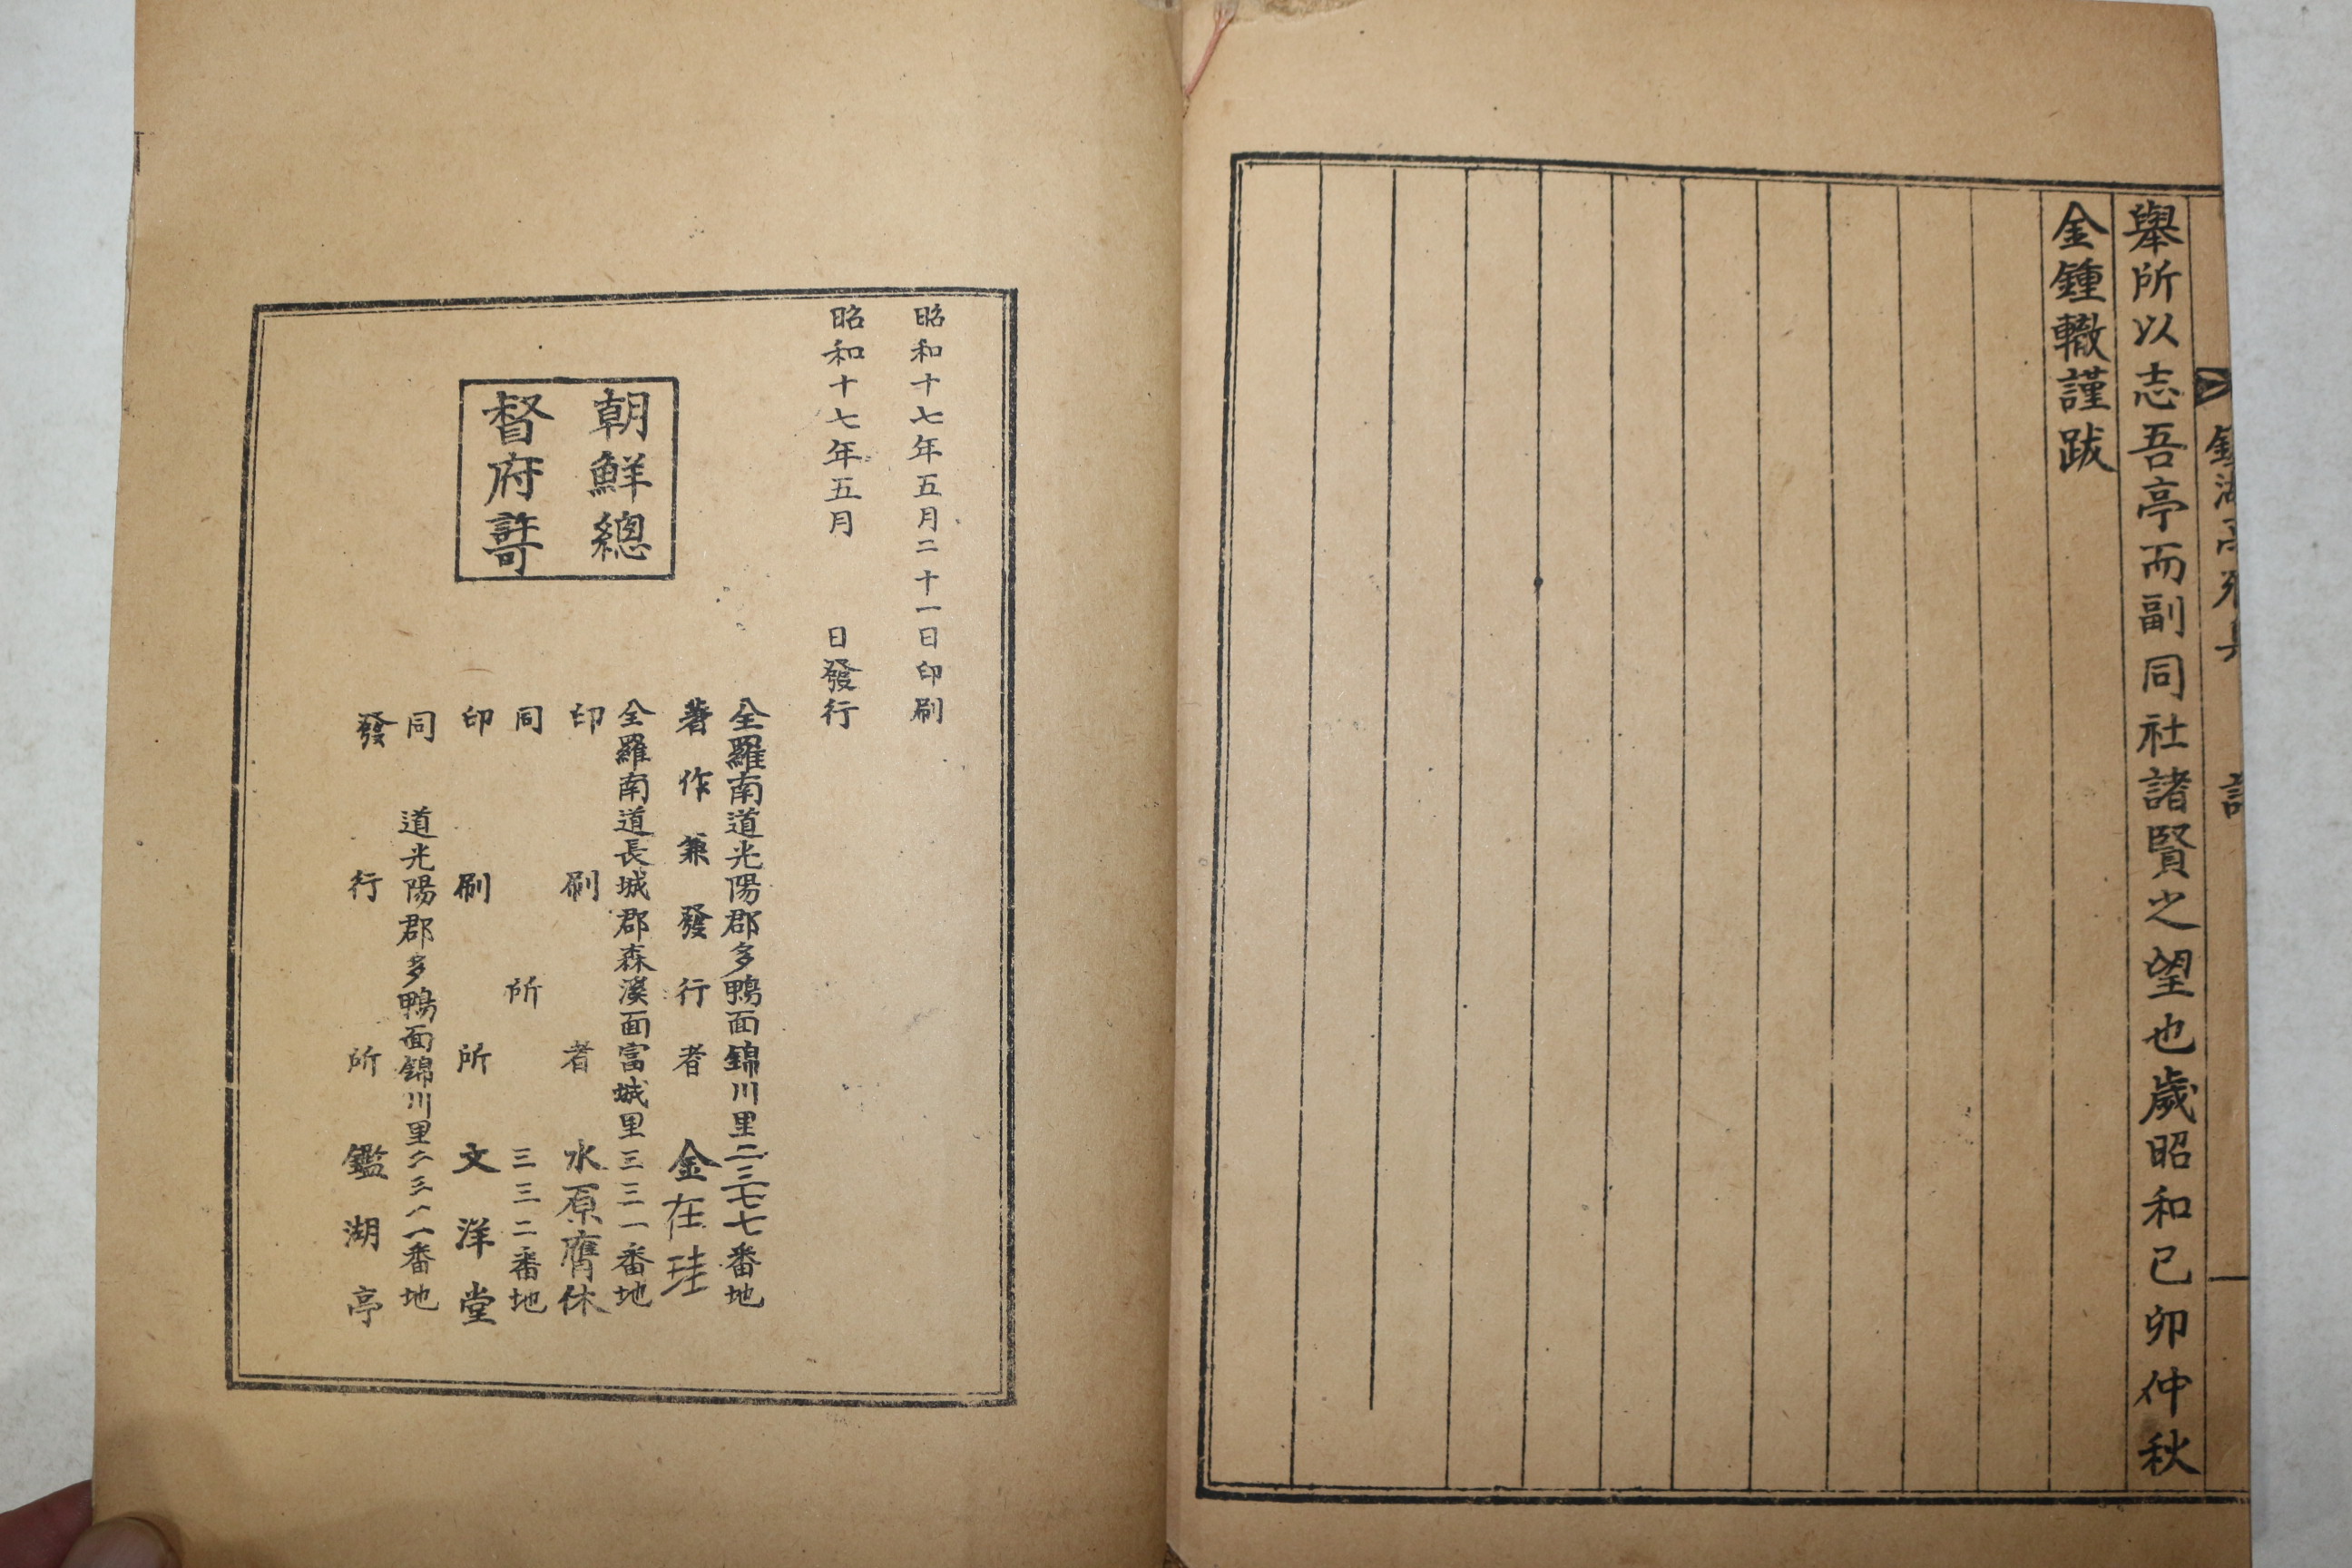 舉所以志吾亭而副同社諸賢之望也歲昭和己卯仲秋
金鍾轍謹跋
昭和十七年五月二十一日印刷
昭和十七年五月 日發行
朝鮮總
督府許
全羅南道光陽郡多鴨面錦川里二三七七番地
著作兼發行者 金在珪
全羅南道長城郡森溪面富城里三三一番地
印刷者 水原膺休
同所 三三二番地
印刷所 文洋堂
同 道光陽郡多鴨面錦川里 番地
發行所 鑑湖亭